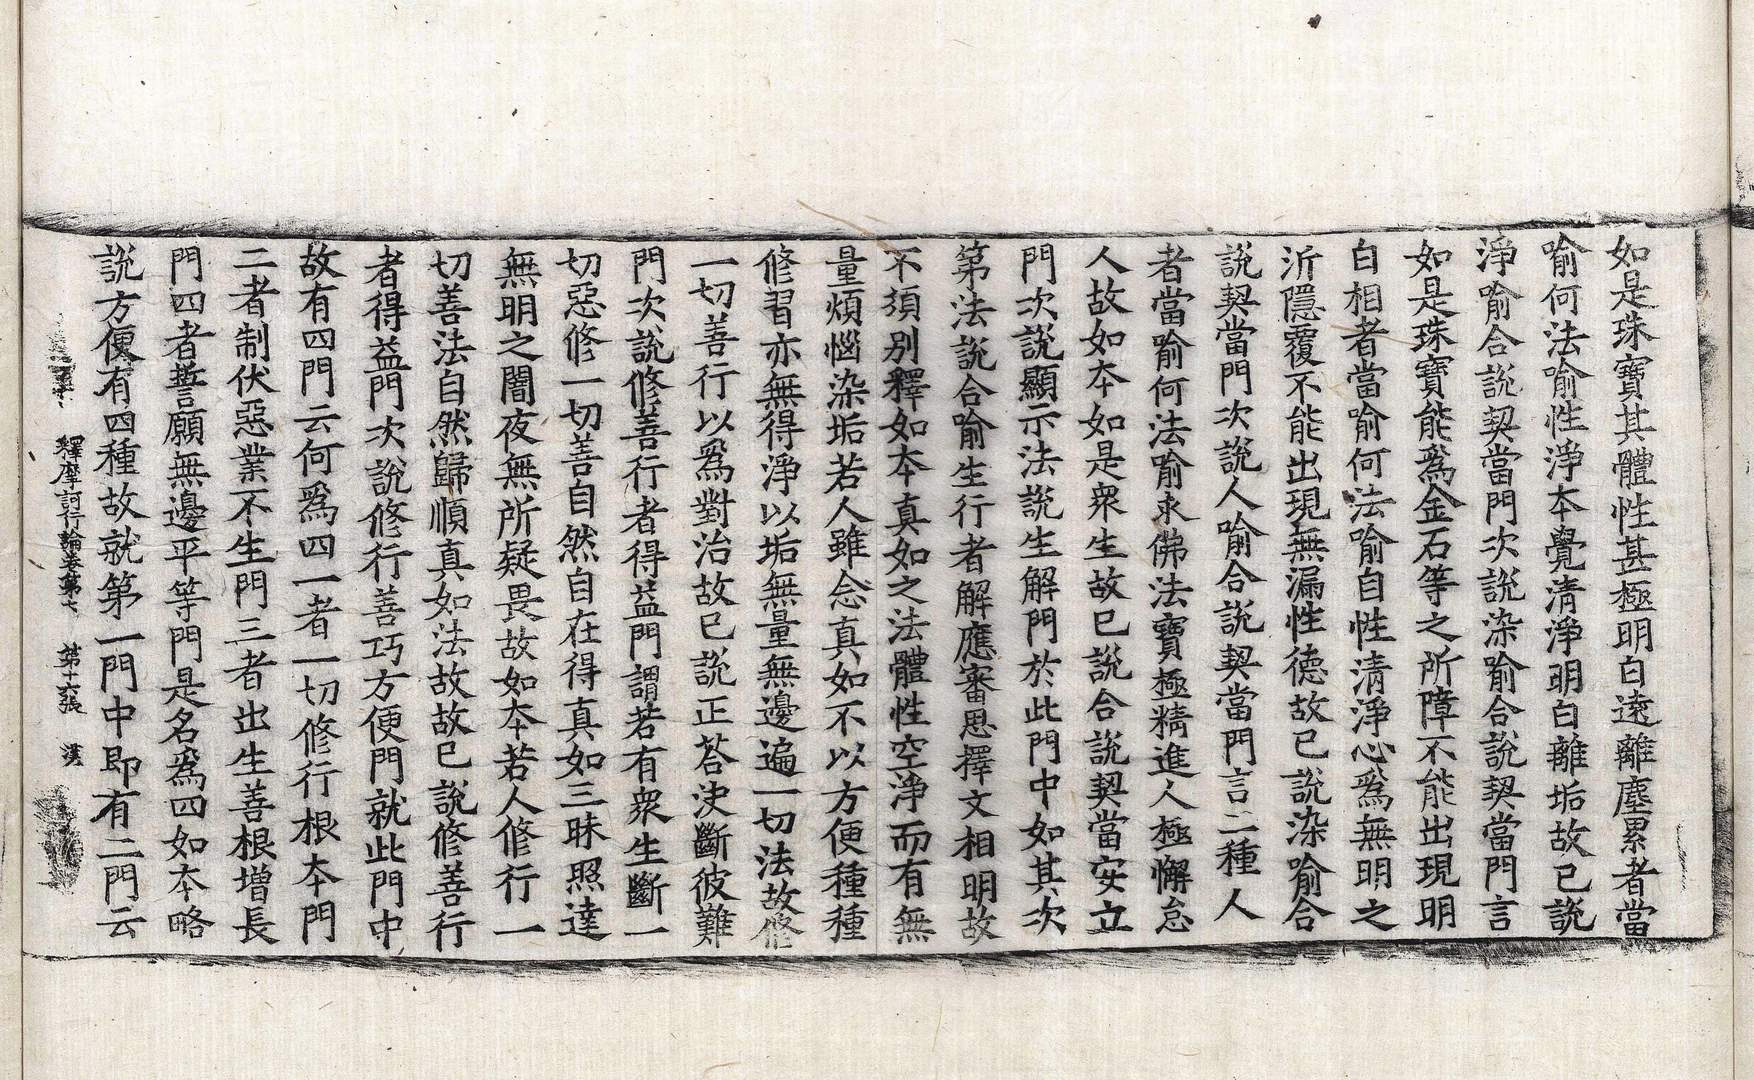 如是珠寶其體性甚極明白遠離塵累者當
喻何法喻性淨本覺清淨明白離垢故已說
淨喻合說契當門次說染喻合說契當門言
如是珠寶能爲金石等之所障不能出現明
白相者當喻何法喻自性清淨心爲無明之
所隱覆不能出現無漏性德故已說染喻合
說契當門次說人喻合說契當門言二種人
者當喻何法喻求佛法寶極精進人極懈怠
人故如本如是衆生故已說合說契當安立
門次說顯示法說生解門於此門中如其次
第法說合喻生行者解應審思擇文相明故
不須別釋如本真如之法體性空淨而有無
量煩惱染垢若人雖念真如不以方便種種
修習亦無得淨以垢無量無邊遍一切法故修
一切善行以爲對治故已說正荅決斷彼難
門次說修善行者得益門謂若有衆生斷一
切惡修一切善自然自在得真如三昧照達
無明之闇夜無所疑畏故如本若人修行一
切善法自然歸順真如法故故已說修善行
者得益門次說修行善巧方便門就此門中
故有四門云何爲四一者一切修行根本門
二者制伏惡業不生門三者出生善根增長
門四者誓願無邊平等門是名爲四如本略
說方便有四種故就第一門中即有二門云
釋摩訶衍論卷第七　第十六張　漢